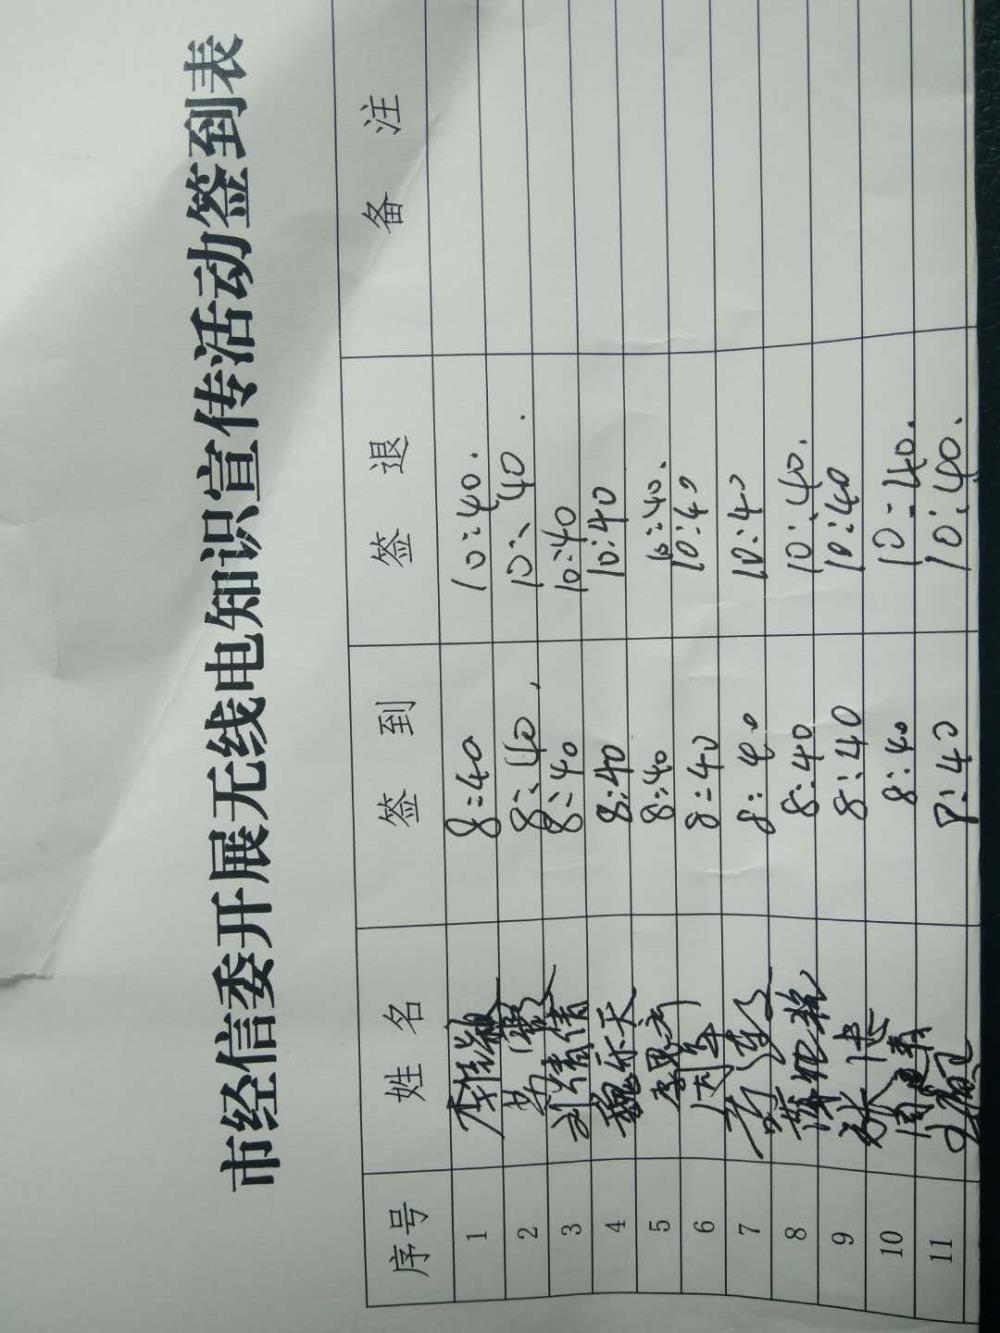 市经信委开展无线电知识宣传活动签到表
序号 姓名 签到 签退 备注
1 8:40 10:40.
2 8:40, 10:40.
3 刘倩倩 8:40 10:40
4 魏乐天 8:40 10:40
5 8:40 10:40.
6 刘军 8:40 10:40
7 8:40 10:40
8 8:40 10:40.
9 张建 8:40 10:40
10 8:40 10:40.
11 8:40 10:40.